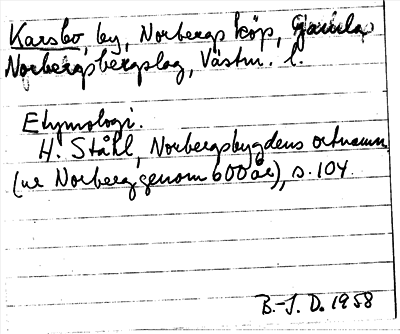 Karsbo, by, Norbergs köp, Gamla
Norbergsbergslag, Västm. l.
Etymologi.
H. Ståhl, Norbergsbygdens ortnamn
(ur Norberg genom 600 år), s. 104.
B.-J. D. 1958